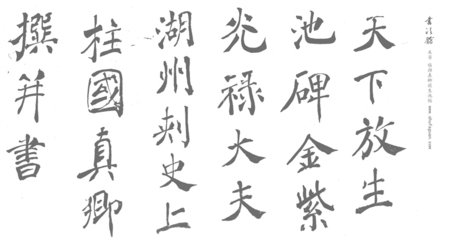 天下放生
池碑金紫
光禄大夫
湖州刺史上
柱國真卿
撰并書